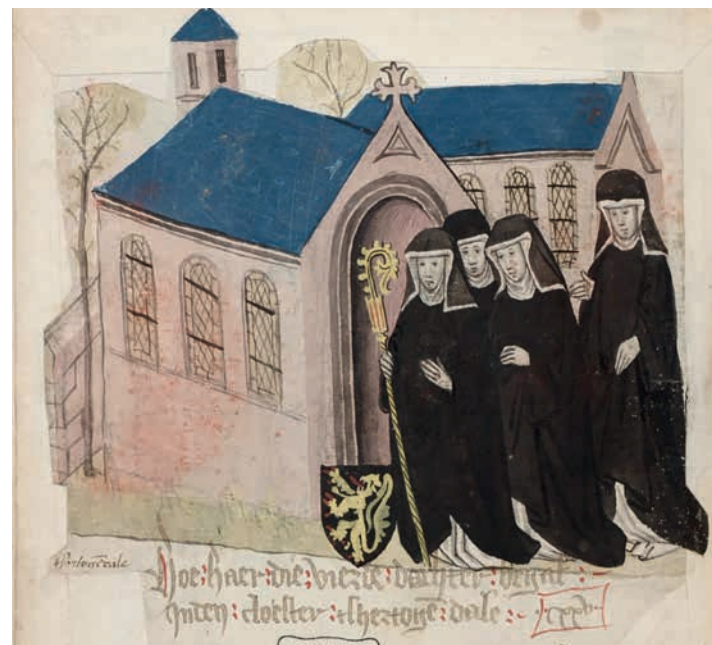 hoe : haer : die : vierde : dochter : begaf :~
Inden : cloester : tshertogē : dale :~ ·cxxv·